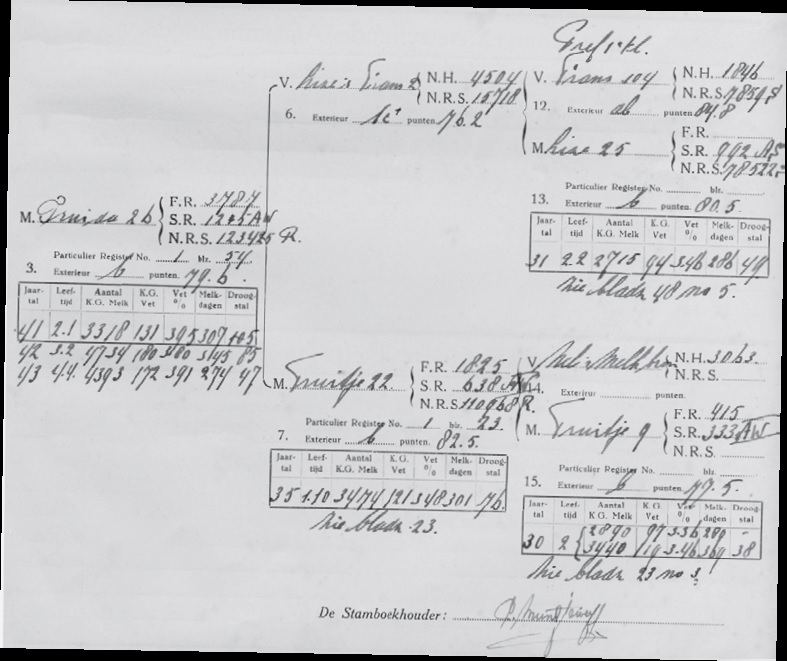 Pref 1e kl.
V. Rixe's Frans 2 N.H. 4504
N.R.S. 15718
6. Exterieur punten. 76.2
V. Frans 104 N.H. 1846
N.R.S. 7859
12. Exterieur ab punten 84.8
M. Rixe 25 F.R.
S.R. 992
N.R.S. 78522
Particulier Register No. blz.
13. Exterieur b punten. 80.5.
Jaar-tal Leef-tijd Aantal K.G. Melk K.G. Vet Vet % Melk-dagen Droog-stal
31 2.2 2715 94 3.46 286 49
Zie bladz 48 no 5.
M. Truida 26 F.R. 3787
S.R. 1245 AW
N.R.S. 123425 R.
Particulier Register No. 1 blz. 54
3. Exterieur b punten. 79.6.
Jaar-tal Leef-tijd Aantal K.G. Melk K.G. Vet Vet % Melk-dagen Droog-stal
41 2.1 3318 131 395 307
42 3.2 4734 180 380 345 85
43 4.4 4393 172 391 274 47
M. Truitje 22. F.R. 1825
S.R. 638
N.R.S. 110968 R.
Particulier Register No. 1 blz. 23.
7. Exterieur b punten. 82.5.
Jaar-tal Leef-tijd Aantal K.G. Melk K.G. Vet Vet % Melk-dagen Droog-stal
35 1.10 3474 121 348 301 76
Zie bladz. 23.
V. N.H. 3063.
N.R.S.
14. Exterieur punten.
M. Truitje 9 F.R. 415
S.R. 333 AW
N.R.S.
Particulier Register No. blz.
15. Exterieur b punten. 77.5.
Jaar-tal Leef-tijd Aantal K.G. Melk K.G. Vet Vet % Melk-dagen Droog-stal
30 2 2890 97 3.36 289 -
3440 119 3.46 369 38
Zie bladz 23 no 3.
De Stamboekhouder: